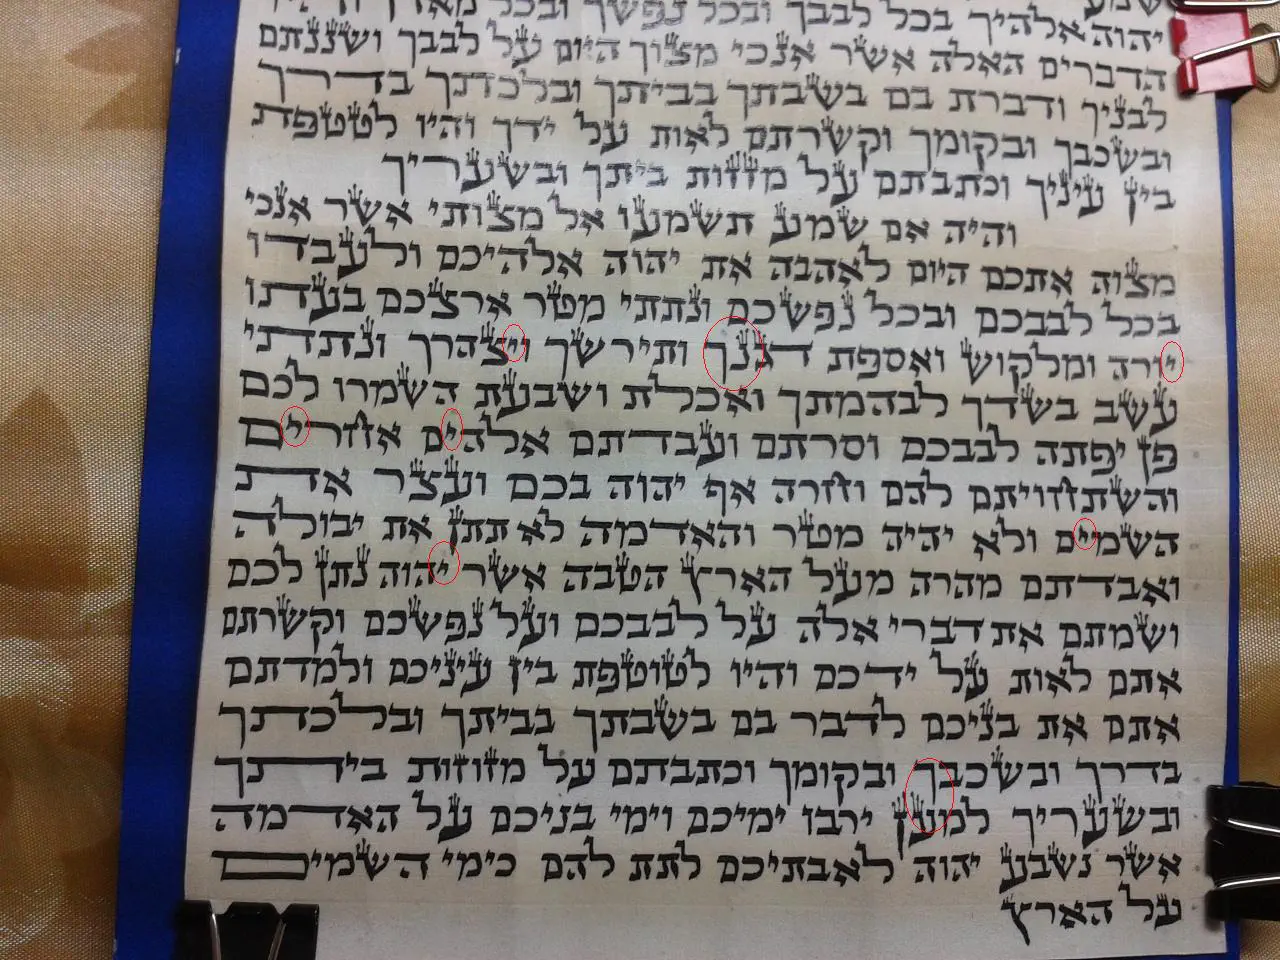 שמע
יהוה אלהיך בכל לבבך ובכל נפשך ובכל מאדך והיו
הדברים האלה אשר אנכי מצוך היום על לבבך ושננתם
לבניך ודברת בם בשבתך בביתך ובלכתך בדרך
ובשכבך ובקומך וקשרתם לאות על ידך והיו לטטפת
בין עיניך וכתבתם על מזזות ביתך ובשעריך
והיה אם שמע תשמעו אל מצותי אשר אנכי
מצוה אתכם היום לאהבה את יהוה אלהיכם ולעבדו
בכל לבבכם ובכל נפשכם ונתתי מטר ארצכם בעתו
יורה ומלקוש ואספת דגנך ותירשך ויצהרך ונתתי
עשב בשדך לבהמתך ואכלת ושבעת השמרו לכם
פן יפתה לבבכם וסרתם ועבדתם אלהים אחרים
והשתחויתם להם וחרה אף יהוה בכם ועצר את
השמים ולא יהיה מטר והאדמה לא תתן את יבולה
ואבדתם מהרה מעל הארץ הטבה אשר יהוה נתן לכם
ושמתם את דברי אלה על לבבכם ועל נפשכם וקשרתם
אתם לאות על ידכם והיו לטוטפת בין עיניכם ולמדתם
אתם את בניכם לדבר בם בשבתך בביתך ובלכתך
בדרך ובשכבך ובקומך וכתבתם על מזוזות ביתך
ובשעריך למען ירבו ימיכם וימי בניכם על האדמה
אשר נשבע יהוה לאבתיכם לתת להם כימי השמים
על הארץ